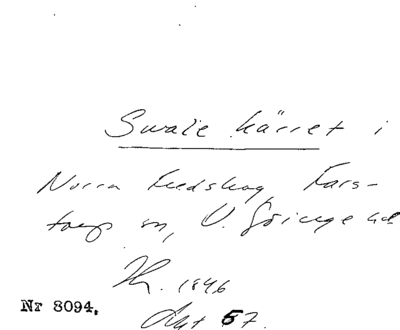 Swale kärret i
Norra Fredskog, Fars-
torps sn, V. Göinge hd
1846
Nr 8094.
Akt 57.